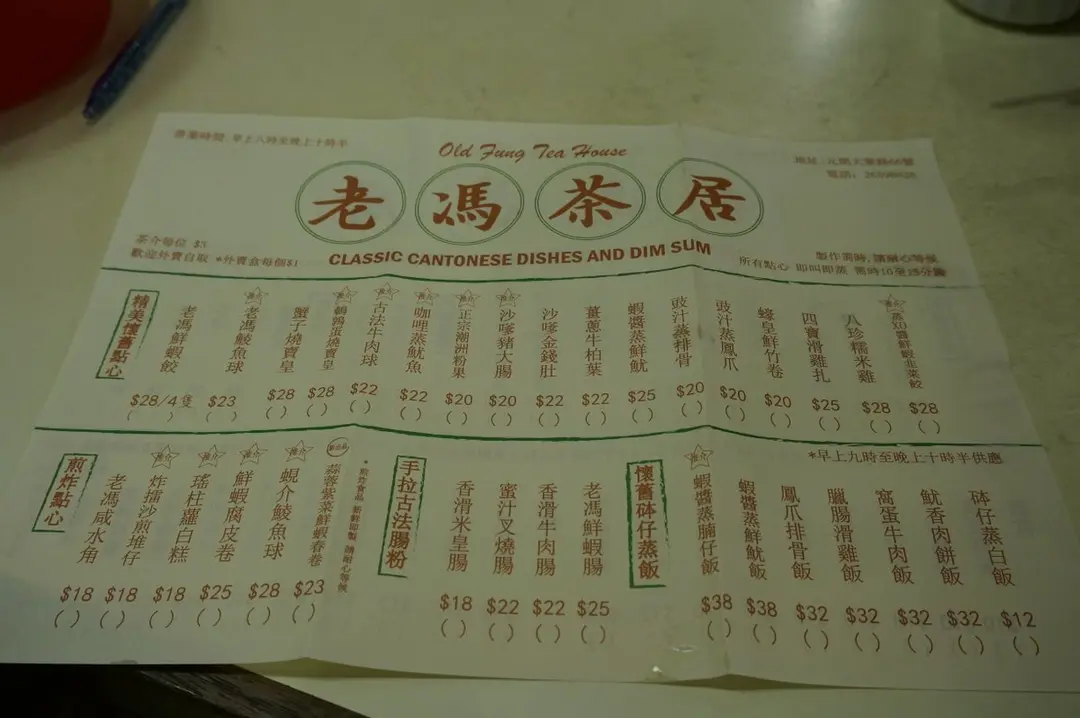 營業時間:早上八時至晚上十時半
Old Fung Tea House
老馮茶居
CLASSIC CANTONESE DISHES AND DIM SUM
茶介每位 $3
歡迎外賣自取 *外賣盒每個$1
電話:
製作需時,請耐心等候
所有點心 即叫即蒸 需時10至15分鐘
精美懷舊點心
老馮鮮蝦餃 $28/4隻 ( )
推介 老馮鯪魚球 $23 ( )
蟹子燒賣皇 $28 ( )
推介 鵪鶉蛋燒賣皇 $28 ( )
推介 古法牛肉球 $22 ( )
推介 咖哩蒸魷魚 $22 ( )
推介 正宗潮洲粉果 $20 ( )
推介 沙嗲豬大腸 $20 ( )
沙嗲金錢肚 $22 ( )
薑蔥牛柏葉 $22 ( )
蝦醬蒸鮮魷 $25 ( )
豉汁蒸排骨 $20 ( )
豉汁蒸鳳爪 $20 ( )
蠔皇鮮竹卷 $20 ( )
四寶滑雞扎 $25 ( )
八珍糯米雞 $28 ( )
推介 蒸XO醬鮮蝦韭菜餃 $28 ( )
煎炸點心
老馮咸水角 $18 ( )
推介 炸擂沙煎堆仔 $18 ( )
推介 瑤柱蘿白糕 $18 ( )
推介 鮮蝦腐皮卷 $25 ( )
推介 蜆介鯪魚球 $28 ( )
蒜蓉紫菜鮮蝦春卷 $23 ( )
*煎炸食品 新鮮即製 請耐心等候
手拉古法腸粉
香滑米皇腸 $18 ( )
蜜汁叉燒腸 $22 ( )
香滑牛肉腸 $22 ( )
老馮鮮蝦腸 $25 ( )
懷舊砵仔蒸飯
*早上九時至晚上十時半供應
推介 蝦醬蒸腩仔飯 $38 ( )
蝦醬蒸鮮魷飯 $38 ( )
鳳爪排骨飯 $32 ( )
臘腸滑雞飯 $32 ( )
窩蛋牛肉飯 $32 ( )
魷香肉餅飯 $32 ( )
砵仔蒸白飯 $12 ( )